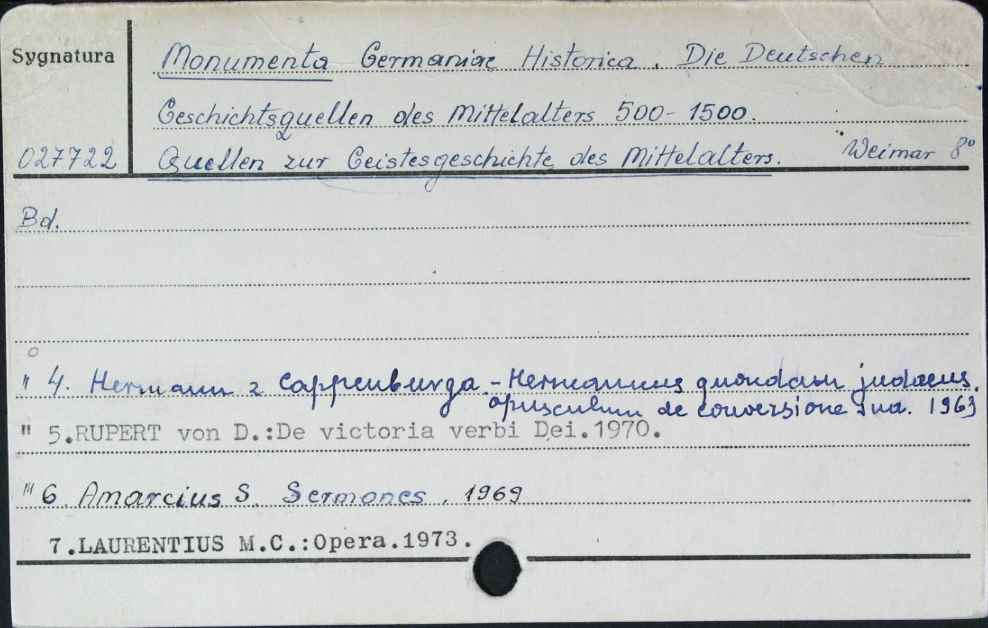 Sygnatura
Monumenta Germaniae Historica. Die Deutschen
Geschichtsquellen des Mittelalters 500-1500.
027722
Quellen zur Geistesgeschichte des Mittelalters. Weimar 8°
Bd.
" 4. Hermann z Cappenburga - Hermannus quondam judaeus.
opusculum de conversione sua. 1963
" 5.RUPERT von D.:De victoria verbi Dei.1970.
" 6. Amarcius S. Sermones. 1969
7.LAURENTIUS M.C.:Opera.1973.